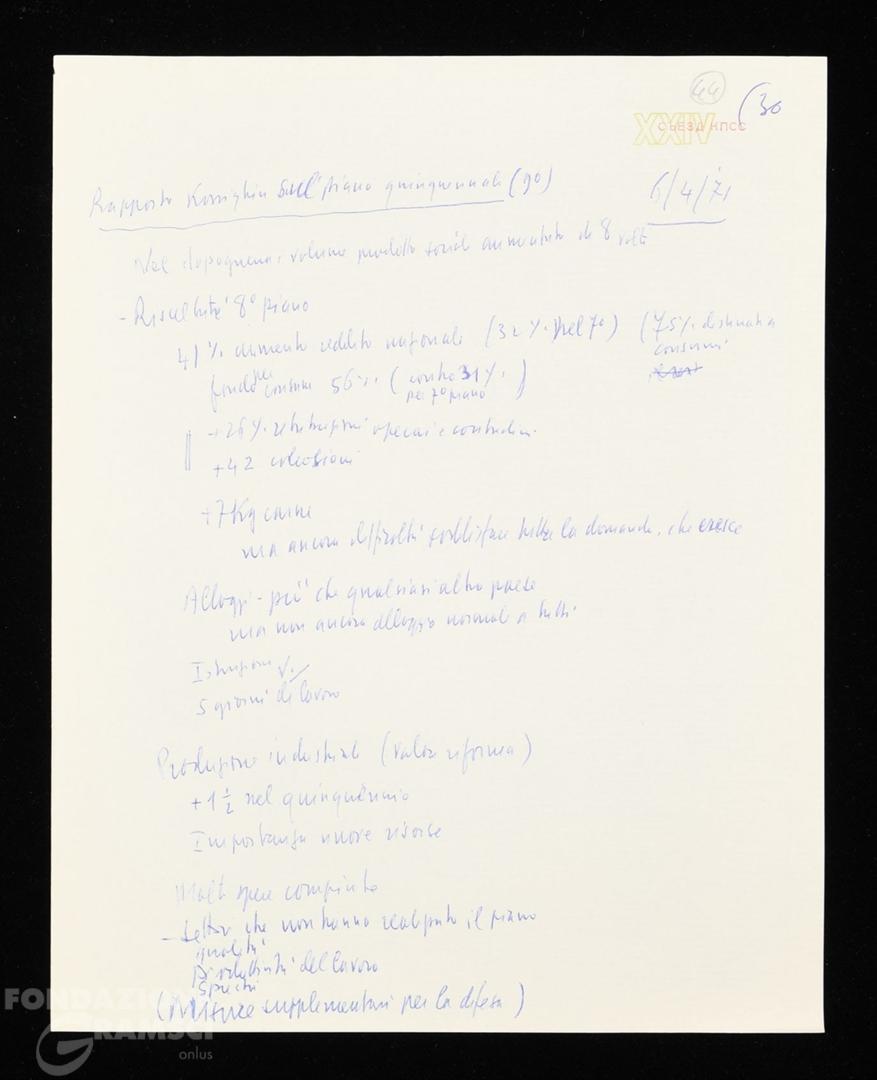 44
(30
XXIV
СЪЕЗД КПСС
Rapporto Kossighin sull' piano quinquennale (9°)
6/4/71
Nel dopoguerra volume prodotto sociale aumentato di 8 volte
- Risultati 8° piano
41% aumento reddito nazionale (32% nel 7°) (75% destinati a
consumi
fondo per consumi 56% (contro 31%
nel 7° piano)
+26% retribuzioni operai e contadini
+42 colcosiani
+7 Kg carne
ma ancora difficoltà soddisfare tutta la domanda, che cresce
Alloggi - più che qualsiasi altro paese
ma non ancora alloggio normale a tutti
Istruzione
5 giorni di lavoro
Produzione industriale (valore riforma)
+1 ½ nel quinquennio
Importanza nuove risorse
Molte opere compiute
- Settori che non hanno realizzato il piano
qualità
produttività del lavoro
sprechi
(Misure supplementari per la difesa)
FONDAZIONE
GRAMSCI
onlus